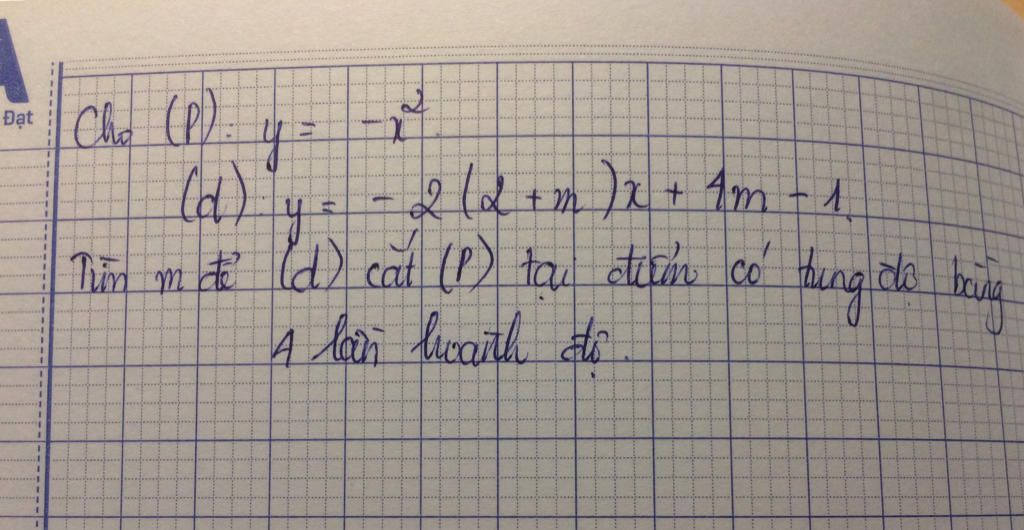 Đạt
Cho (P): y = -x²
(d): y = -2(2+m)x + 4m - 1.
Tìm m để (d) cắt (P) tại điểm có tung độ bằng
4 lần hoành độ.